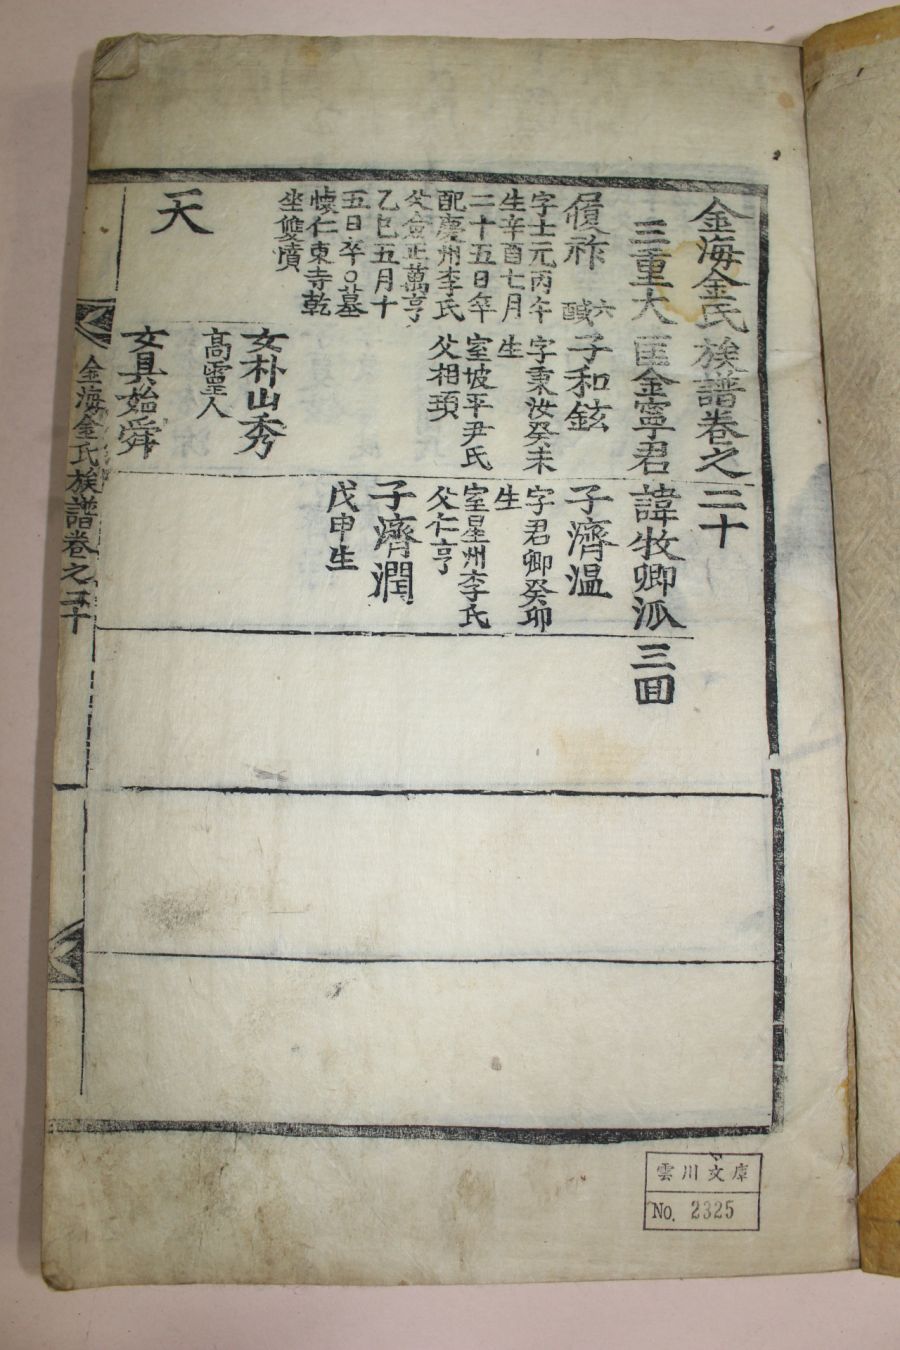 金海金氏族譜卷之二十
三重大匡金寧君諱牧卿派 三囬
履祚
六
醎
字士元丙午
生辛酉七月
二十五日卒
配慶州李氏
父僉正萬亨
乙巳五月十
五日卒〇墓
懷仁東寺乾
坐雙墳
天
子和鉉
字秉汝癸未
生
室坡平尹氏
父相頊
女朴山秀
高靈人
女具始舜
子濟温
字君卿癸卯
生
室星州李氏
父仁亨
子濟潤
戊申生
金海金氏族譜卷之二十
雲川文庫
No. 2325